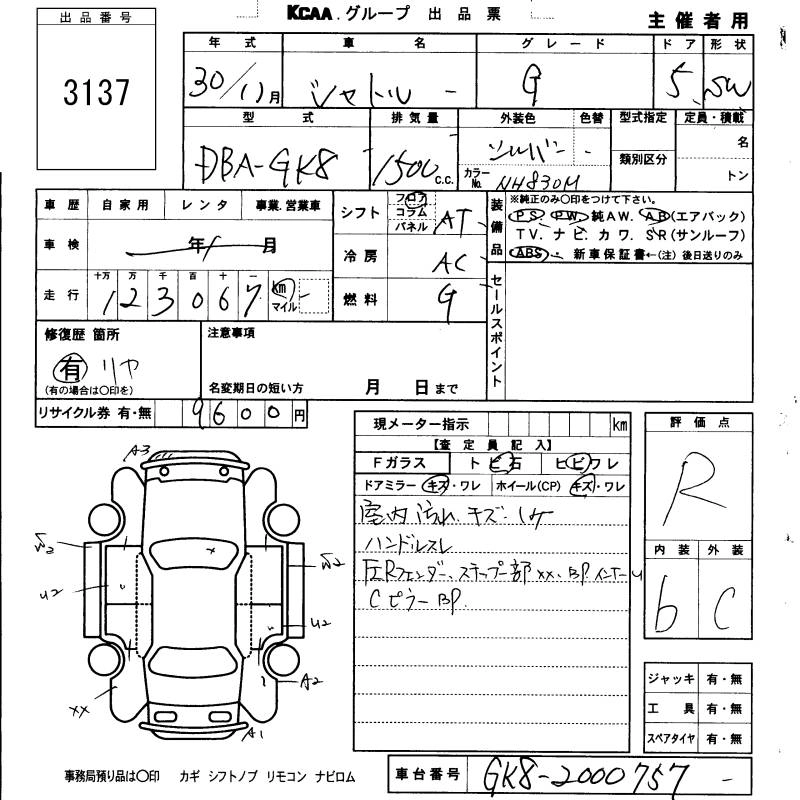 KCAA.グループ 出品票
主催者用
出品番号
3137
年式 車名 グレード ドア 形状
30/11月 シャトル - G 5 SW
型式 排気量 外装色 色替 型式指定 定員・積載
DBA-GK8 1500 C.C. シルバー - 名
カラーNo. NH830M 類別区分 トン
車歴 自家用 レンタ 事業.営業車
車検 年 月
走行 十万 万 千 百 十 一
1 2 3 0 6 7 km マイル -
シフト フロア コラム パネル AT
冷房 AC
燃料 G
装備品
※純正のみ○印をつけて下さい。
PS PW 純AW. AB(エアバック)
TV. ナビ. カワ. SR(サンルーフ)
ABS. 新車保証書←(注) 後日送りのみ
セールスポイント
修復歴 箇所
有 リヤ
(有の場合は○印を)
注意事項
名変期日の短い方 月 日まで
リサイクル券 有・無 9600円
現メーター指示 km
【査定員記入】
Fガラス トビ石 ヒビワレ
ドアミラー キズ・ワレ ホイール(CP) キズ・ワレ
室内汚れ.キズ.コケ
ハンドルスレ
ステップ部 XX. BP.インナーU
Cピラー BP.
評価点
R
内装 外装
b C
ジャッキ 有・無
工具 有・無
スペアタイヤ 有・無
A3
U2
U2
XX
A2
A1
事務局預り品は○印 カギ シフトノブ リモコン ナビロム
車台番号 GK8-2000757 -